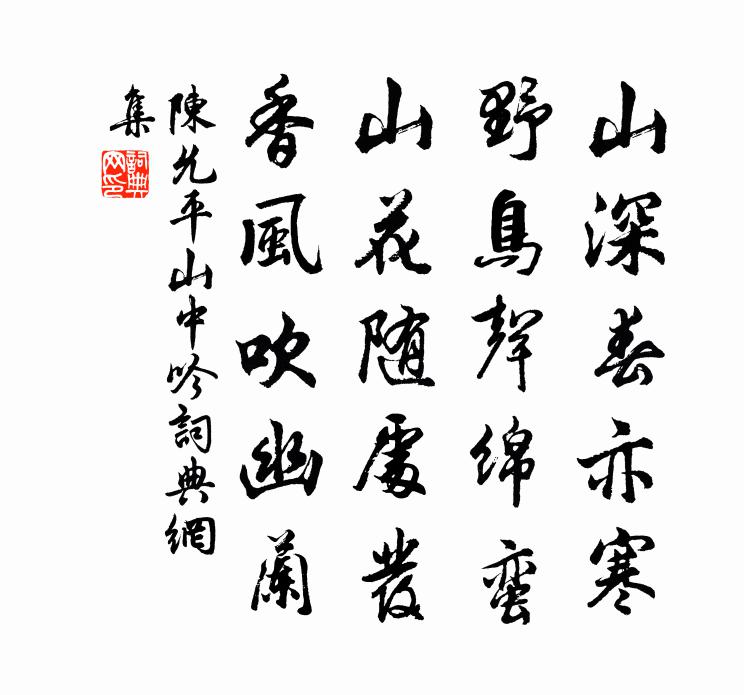 山深春亦寒
野鳥聲綿蠻
山花随處發
香風吹幽蘭
陳允平山中吟詞典網
集
詞典
网印